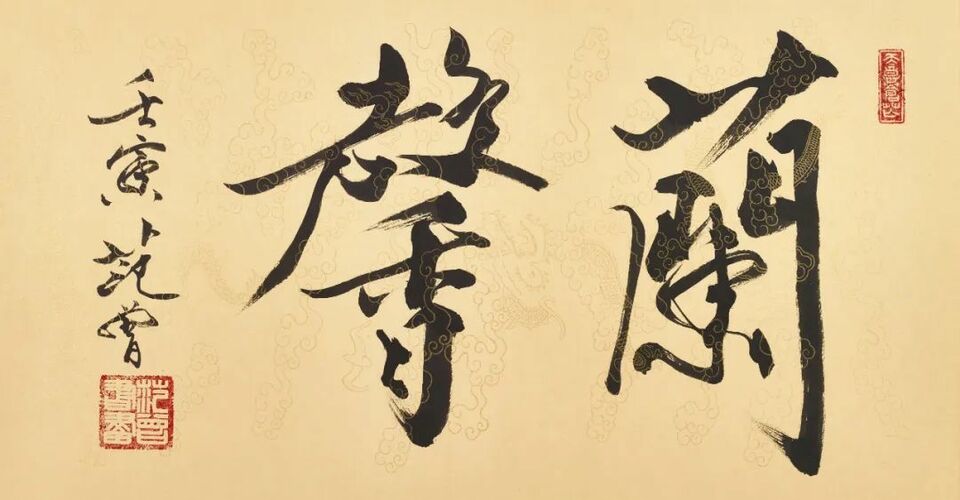 蘭馨
壬寅 范曾
范曾書畫